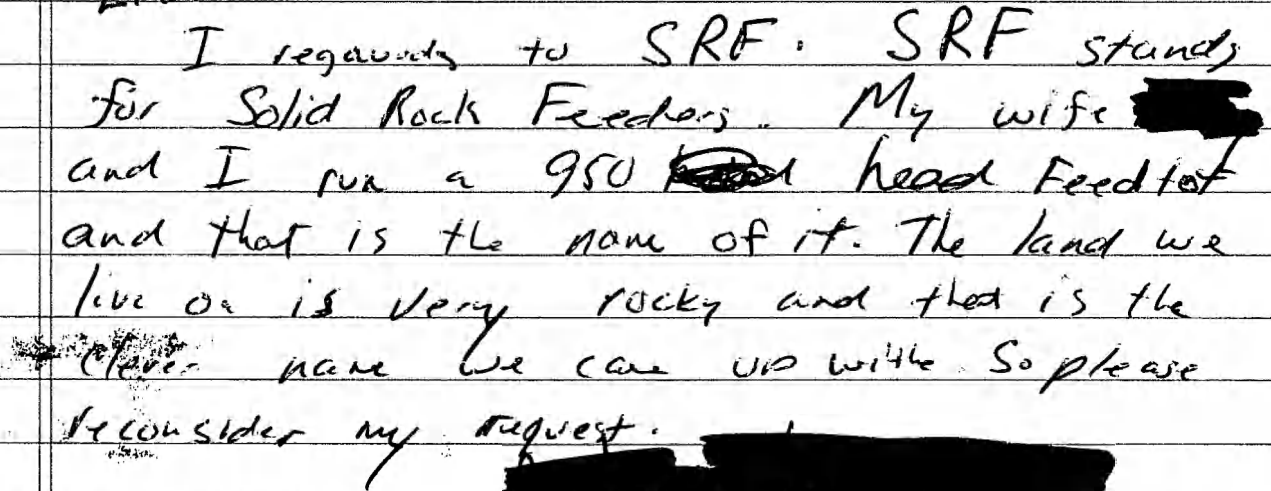 I regaurds to SRF. SRF stands
for Solid Rock Feeders. My wife
and I run a 950 head Feedlot
and that is the name of it. The land we
live on is very rocky and that is the
clever name we came up with. So please
reconsider my request.